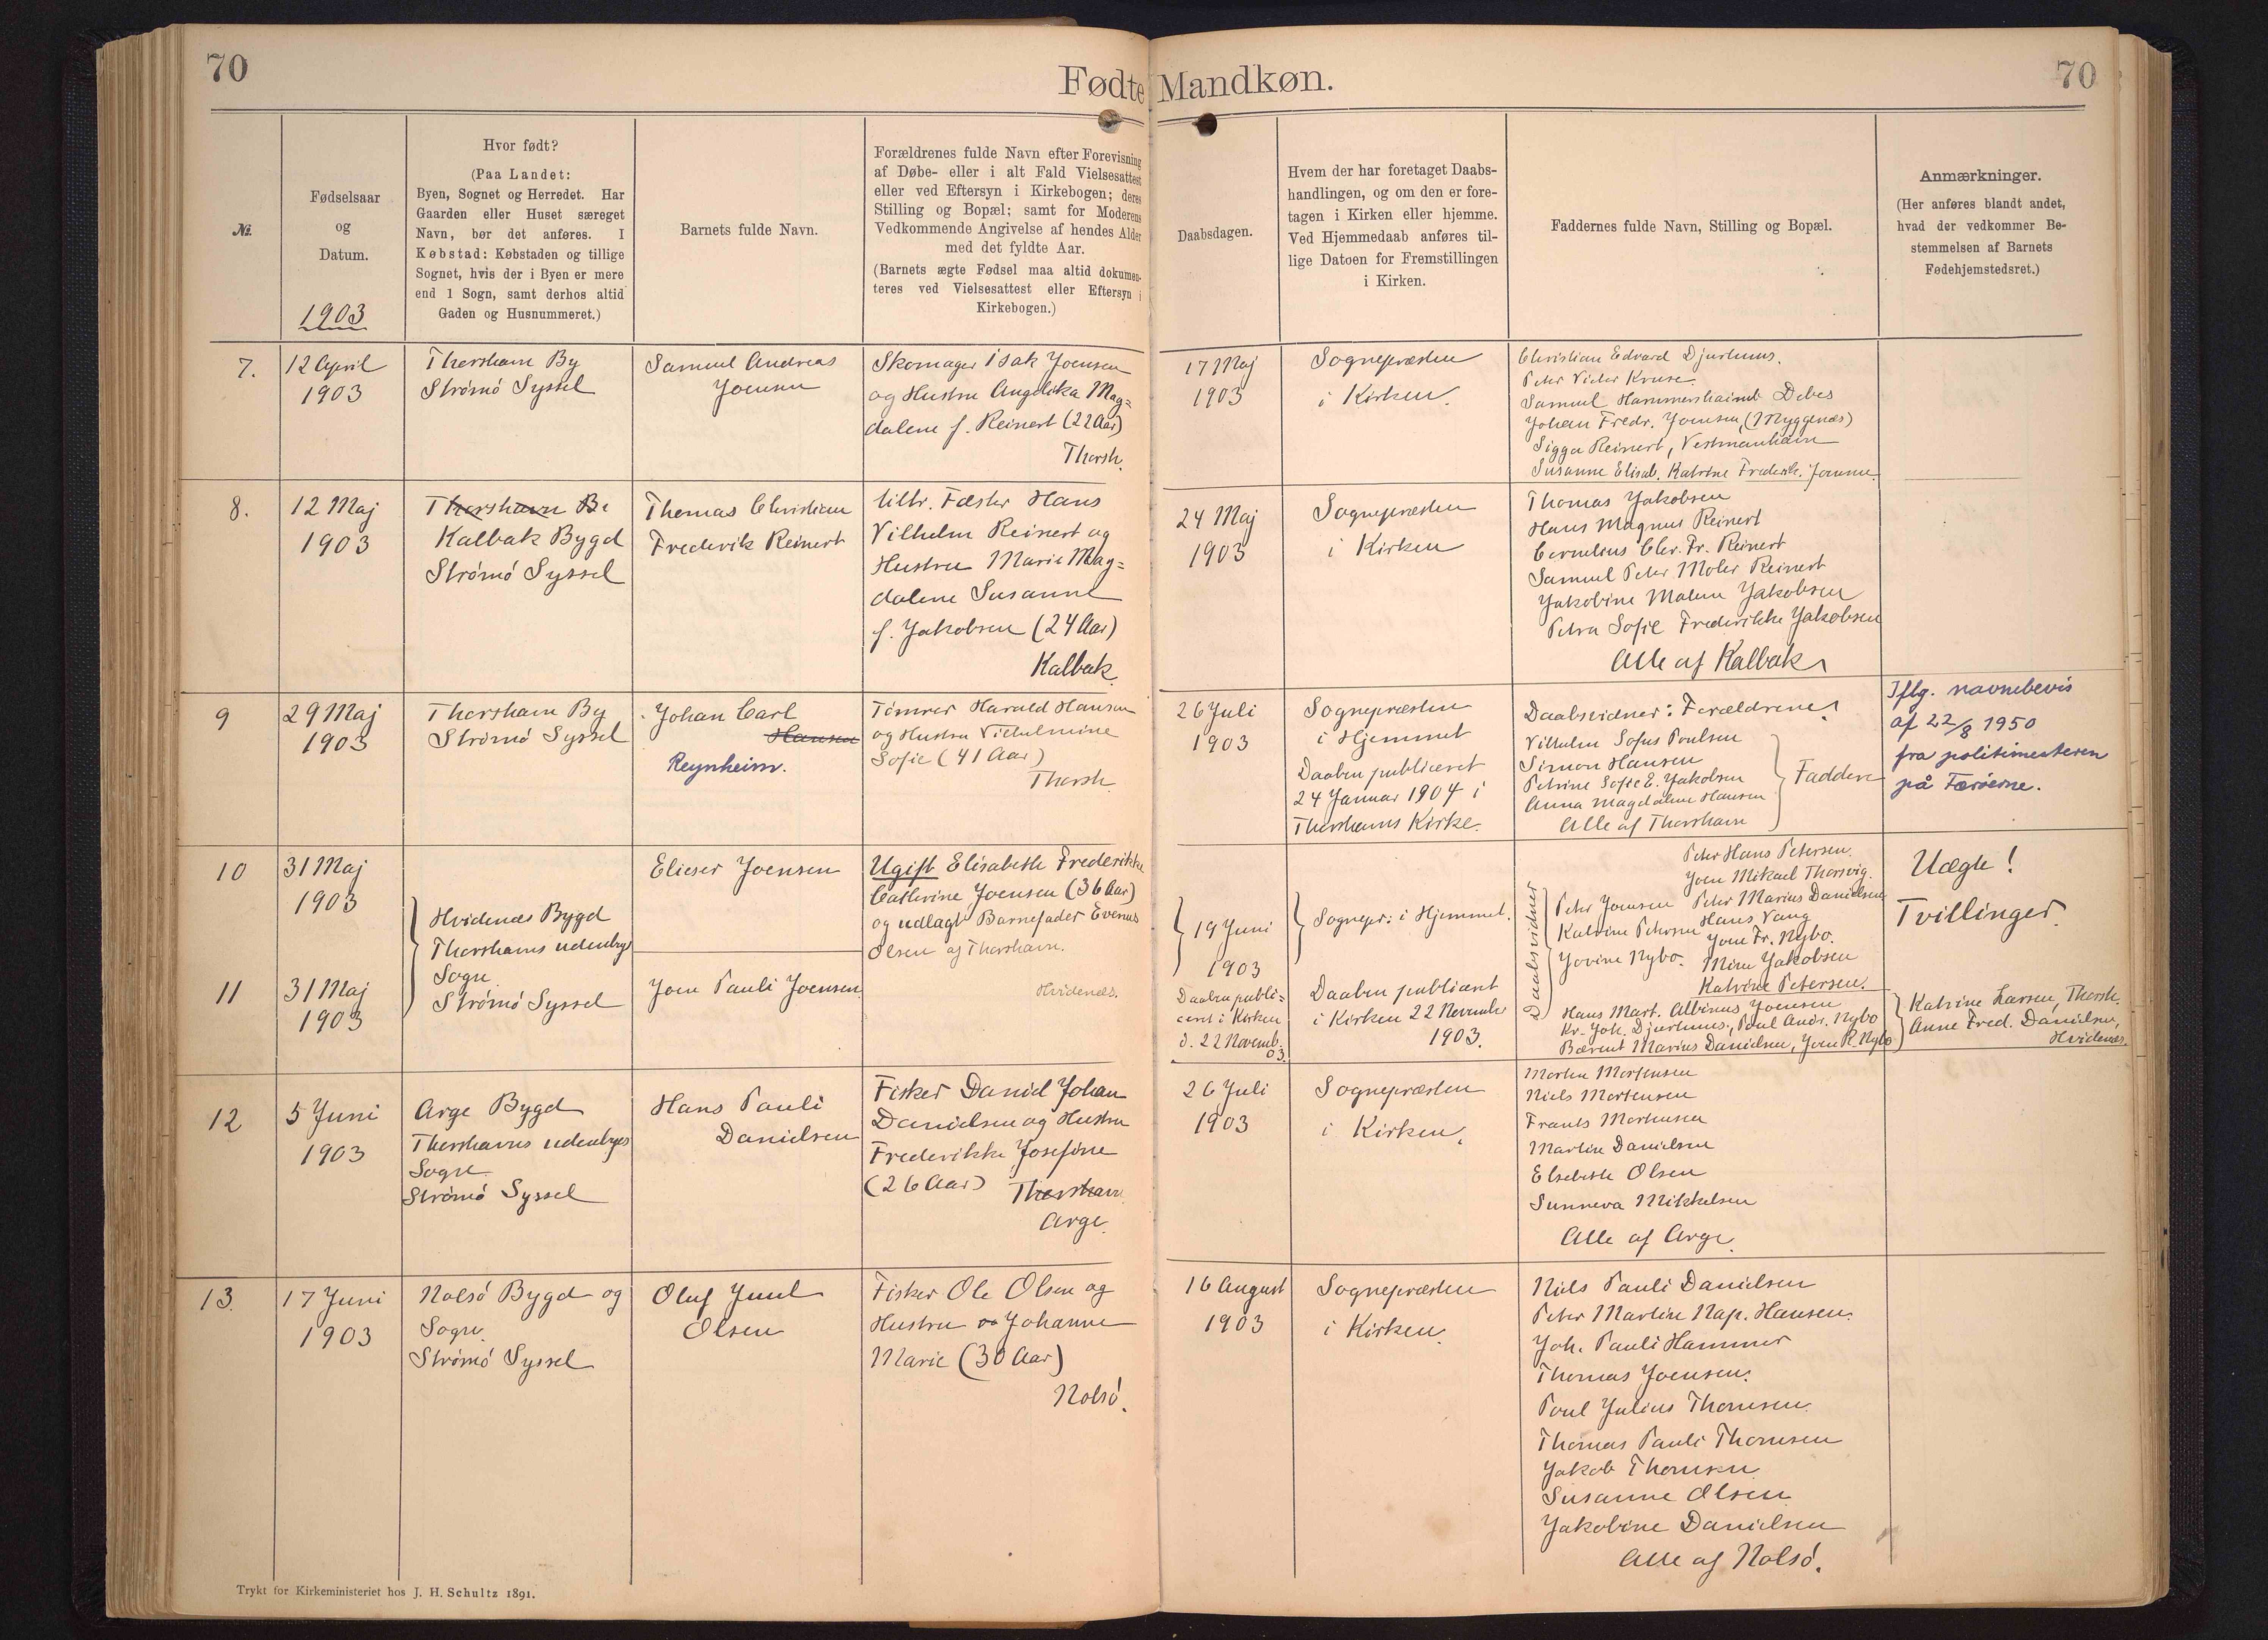 70
Fødte Mandkøn.
70
№.
Fødselsaar
og
Datum.
1903
Hvor født?
(Paa Landet:
Byen, Sognet og Herredet. Har
Gaarden eller Huset særeget
Navn, bør det anføres. I
Købstad: Købstaden og tillige
Sognet, hvis der i Byen er mere
end 1 Sogn, samt derhos altid
Gaden og Husnummeret.)
Barnets fulde Navn.
Forældrenes fulde Navn efter Forevisning
af Døbe- eller i alt Fald Vielsesattest
eller ved Eftersyn i Kirkebogen; deres
Stilling og Bopæl; samt for Moderens
Vedkommende Angivelse af hendes Alder
med det fyldte Aar.
(Barnets ægte Fødsel maa altid dokumen-
teres ved Vielsesattest eller Eftersyn i
Kirkebogen.)
Daabsdagen.
Hvem der har foretaget Daabs-
handlingen, og om den er fore-
tagen i Kirken eller hjemme.
Ved Hjemmedaab anføres til-
lige Datoen for Fremstillingen
i Kirken.
Faddernes fulde Navn, Stilling og Bopæl.
Anmærkninger.
(Her anføres blandt andet,
hvad der vedkommer Be-
stemmelsen af Barnets
Fødehjemstedsret.)
7.
12 April
1903
Thorshavn By
Strømö Syssel
Samuel Andreas
Joensen
Skomager Isak Joensen
og Hustru Angelika Mag=
dalene f. Reinert (22 Aar)
Thorsh.
17 Maj
1903
Sognepræsten
i Kirken.
Christian Edvard Djurhuus.
Peter Victor Kruse.
Samuel Hammershaimb Debes
Johan Fredr. Joensen, (Myggenæs)
Sigga Reinert, Vestmanhavn
Susanne Elisab. Katrine Frederik. Joensen
8.
12 Maj
1903
Thorshavn By
Kalbak Bygd
Strömö Syssel
Thomas Christian
Frederik Reinert
Fæster Hans
Vilhelm Reinert og
Hustru Marie Mag=
dalene Susanne
f. Jakobsen (24 Aar)
Kalbak.
24 Maj
1903
Sognepræsten
i Kirken
Thomas Jakobsen
Hans Magnus Reinert
Cornelius Chr. Fr. Reinert
Samuel Peter Moler Reinert
Jakobine Malene Jakobsen
Petra Sofie Frederikke Jakobsen
Alle af Kalbak
9
29 Maj
1903
Thorshavn By
Strömö Syssel
Johan Carl
Hansen
Reynheim.
Tömrer Harald Hansen
og Hustru Vilhelmine
Sofie (41 Aar)
Thorsh.
26 Juli
1903
Sognepræsten
i Hjemmet
Daaben publiceret
24 Januar 1904 i
Thorshavns Kirke.
Daabsvidner: Forældrene
Vilhelm Sofus Poulsen
Simon Hansen
Petrine Sofie E. Jakobsen
Anna Magdalene Hansen
Alle af Thorshavn
Faddere
Iflg. navnebevis
af 22/8 1950
fra politimesteren
på Færöerne.
10
31 Maj
1903
Hvidenæs Bygd
Thorshavns udenbys
Sogn
Strömö Syssel
Elieser Joensen
Ugift Elisabeth Frederikke
Cathrine Joensen (36 Aar)
og udlagt Barnefader Evenus
Olsen af Thorshavn.
Hvidenæs.
11
31 Maj
1903
Joen Pauli Joensen
19 Juni
1903
Daaben publi=
ceret i Kirken
d. 22 Novemb.
03.
Sognepr. i Hjemmet.
Daaben publiceret
i Kirken 22 November
1903.
Daabsvidner
Peter Hans Petersen.
Joen Mikael Thorsvig.
Peter Joensen Peter Marius Danielsen
Katrine Petersen Hans Vang
Joen Fr. Nybo.
Jovine Nybo. Mina Jakobsen
Katrine Petersen.
Hans Mart. Albinus Joensen
Kr. Joh. Djurhuus, Poul Andr. Nybo
Bærent Marius Danielsen, Joen R. Nybo
Uægte!
Tvillinger.
Katrine Larsen, Thorsh.
Anne Fred. Danielsen,
Hvidenæs.
12
5 Juni
1903
Arge Bygd
Thorshavns udenbyes
Sogn
Strömö Syssel
Hans Pauli
Danielsen
Fisker Daniel Johan
Danielsen og Hustru
Frederikke Josefine
(26 Aar) Thorshavn
Arge.
26 Juli
1903
Sognepræsten
i Kirken.
Morten Mortensen
Niels Mortensen
Frants Mortensen
Martin Danielsen
Elsebeth Olsen
Sunneva Mikkelsen
Alle af Arge.
13.
17 Juni
1903
Nolsö Bygd og
Sogn
Strömö Syssel
Oluf Juul
Olsen
Fisker Ole Olsen og
Hustru Johanne
Marie (30 Aar)
Nolsö.
16 August
1903
Sognepræsten
i Kirken.
Niels Pauli Danielsen
Peter Martin Nap. Hansen.
Joh. Pauli Hammer
Thomas Joensen.
Poul Julius Thomsen.
Thomas Pauli Thomsen
Jakob Thomsen
Susanne Olsen
Jakobine Danielsen
Alle af Nolsö.
Trykt for Kirkeministeriet hos J. H. Schultz 1891.